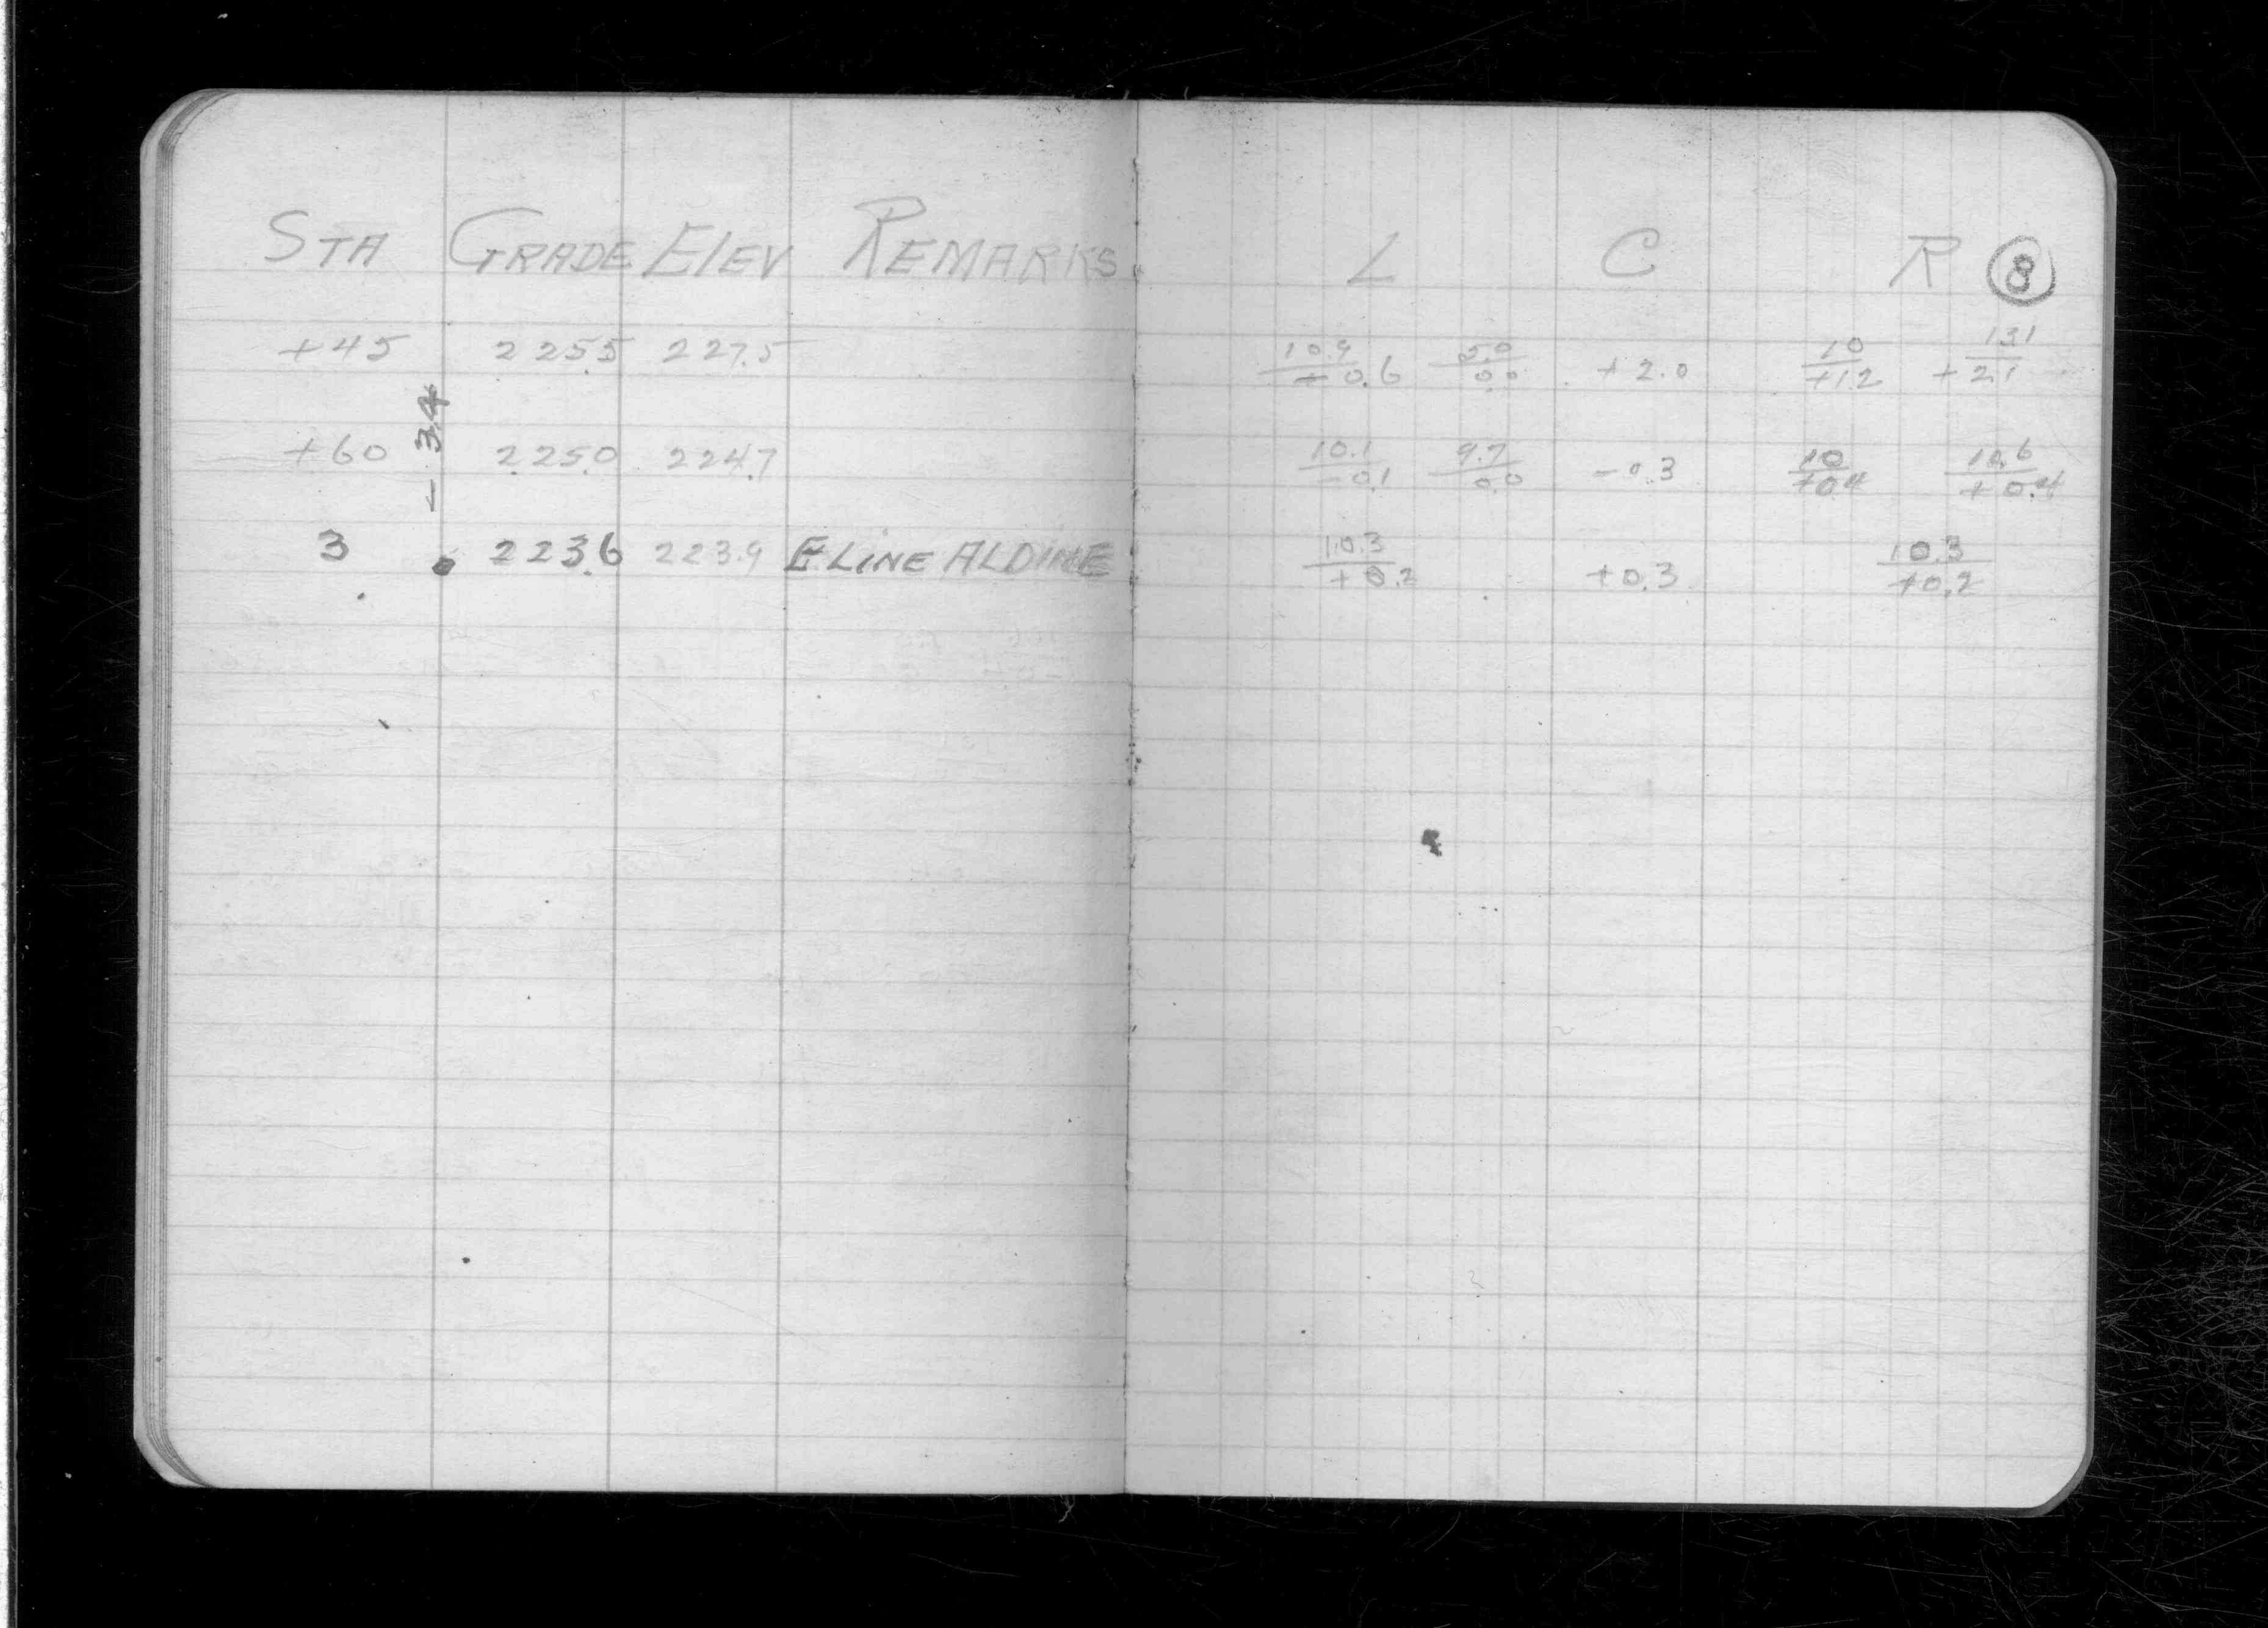 STA GRADE ELEV REMARKS L C R 8
+45 225.5 227.5 10.9/-0.6 5.0/0.0 +2.0 10/+1.2 13.1/+2.1
- 3.4
+60 225.0 224.7 10.1/-0.1 9.7/0.0 -0.3 10/+0.4 10.6/+0.4
3 223.6 223.9 E LINE ALDINE 10.3/+0.2 +0.3 10.3/+0.2